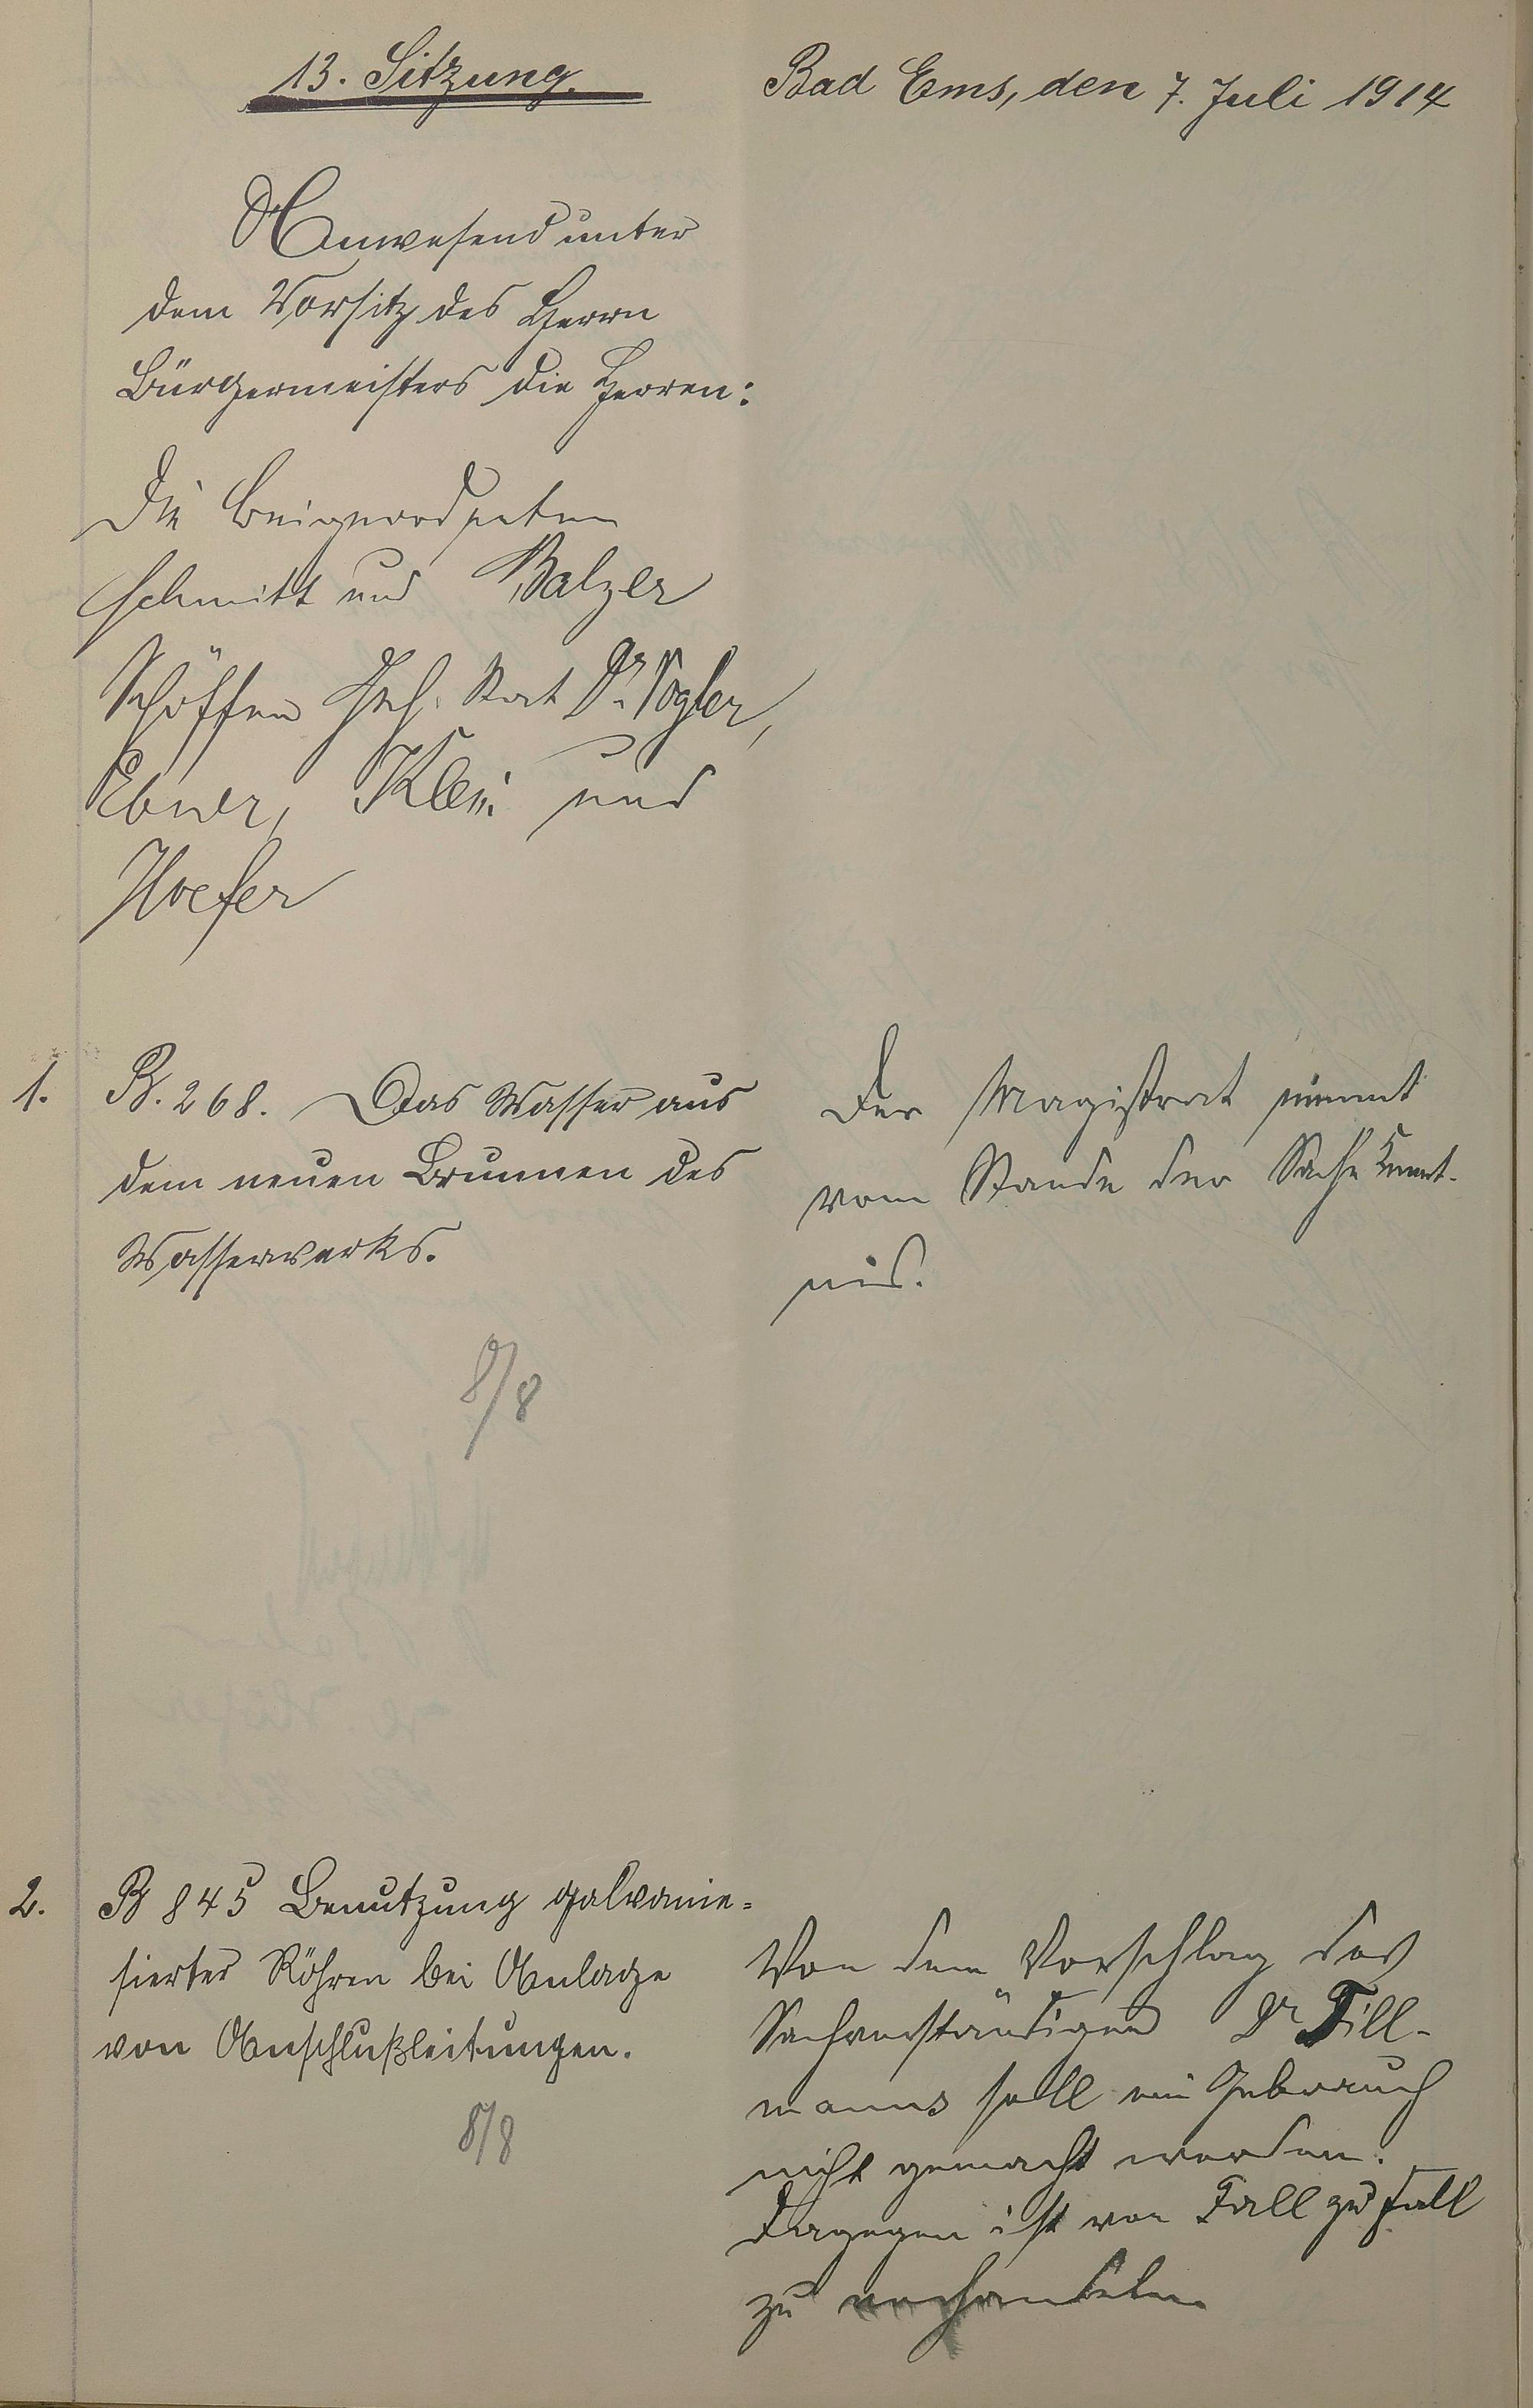 13. Sitzung.
Bad Ems, den 7. Juli 1914
Anwesend unter
dem Vorsitz des Herrn
Bürgermeisters die Herren:
Die Beigeordneten
Schmitt und Balzer
Schöffen Geh. Rat Dr. Vogler,
Ebner, Klein und
Hoefer
1.
B. 268. Das Wasser aus
dem neuen Brunnen des
Wasserwerks.
8/8
Der Magistrat nimmt
vom Stande der Sache Kennt-
nis.
2.
B 845 Benutzung galvanie=
sierter Röhren bei Anlage
von Anschlußleitungen.
8/8
Von dem Vorschlag des
Sachverständigen Dr Till-
manns soll ein Gebrauch
nicht gemacht werden.
Dagegen ist von Fall zu Fall
zu